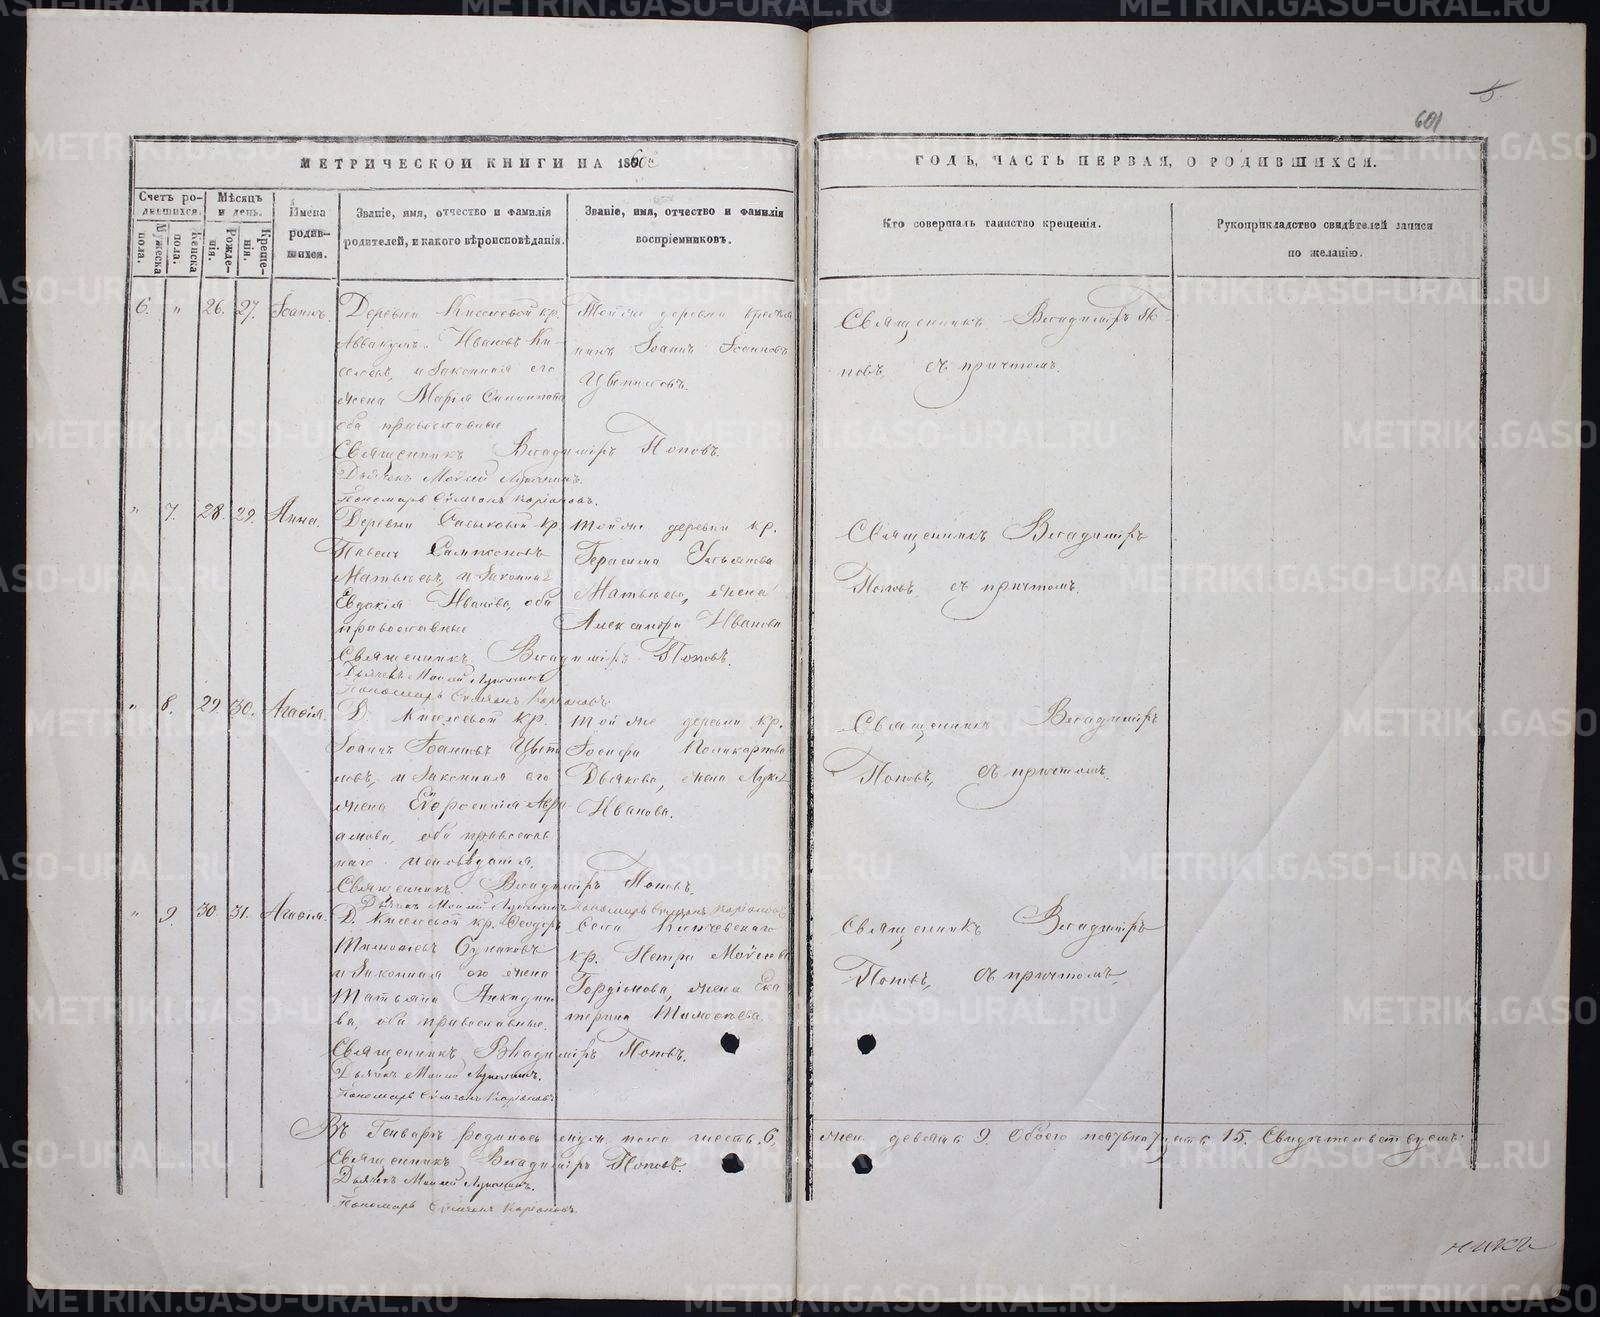 5
601
МЕТРИЧЕСКОЙ КНИГИ НА 1860й
ГОДЪ, ЧАСТЬ ПЕРВАЯ, О РОДИВШИХСЯ.
Счетъ ро-
дившихся.
Мѣсяцъ
и день.
Мужеска
пола.
Женска
пола.
Рожде-
нія.
Креще-
нія.
Имена
родив-
шихся.
Званіе, имя, отчество и фамилія
родителей, и какого вѣроисповѣданія.
Званіе, имя, отчество и фамилія
воспріемниковъ.
Кто совершалъ таинство крещенія.
Рукоприкладство свидѣтелей записи
по желанію.
6. " 26. 27. Іоаннъ.
Деревни Киселевой кр.
Аввакумъ Ивановъ Ки-
селевъ, и законная его
жена Марія
оба православные
Священникъ Владиміръ Поповъ.
Дьячекъ Моисей
Пономарь Симеонъ
Той же деревни крестья
нинъ Іоаннъ Іоанновъ
Священникъ Владиміръ По-
повъ, съ причтомъ.
" 7. 28. 29. Анна.
Деревни кр.
Павелъ Сампсоновъ
Матвѣевъ, и законная
Евдокія Иванова, оба
православные
Священникъ Владиміръ Поповъ.
Дьячекъ Моисей
Пономарь Симеонъ
той же деревни кр.
Герасима Ульянова
Матвѣева, жена
Александра Иванова
Священникъ Владиміръ
Поповъ, съ причтомъ.
" 8. 29. 30. Агафія.
Д. Киселевой кр.
Іоаннъ Іоанновъ
и законная его
жена Евфросинія Авра
амова, оба православ
наго исповѣданія.
Священникъ Владиміръ Поповъ.
Дьячекъ Моисей
Пономарь Симеонъ
той же деревни кр.
Іосифа Поликарпова
Дьякова, жена
Иванова.
Священникъ Владиміръ
Поповъ, съ причтомъ.
" 9. 30 31. Агафія.
Д. Киселевой кр. Феодоръ
Тимофеевъ
и законная его жена
Татьяна
ва, оба православные.
Священникъ Владиміръ Поповъ.
Дьячекъ Моисей
Пономарь Симеонъ
Села
кр. Петра Моисеева
Гордіонова, жена Ека
терина Тимофеева
Священникъ Владиміръ
Поповъ, съ причтомъ.
Въ Генварѣ родилось муж. пола шесть 6.
жен. девять 9. обоего пятнадцать 15. Свидѣтельствуемъ:
Священникъ Владиміръ Поповъ
Дьячекъ Моисей
Пономарь Симеонъ
METRIKI.GASO-URAL.RU